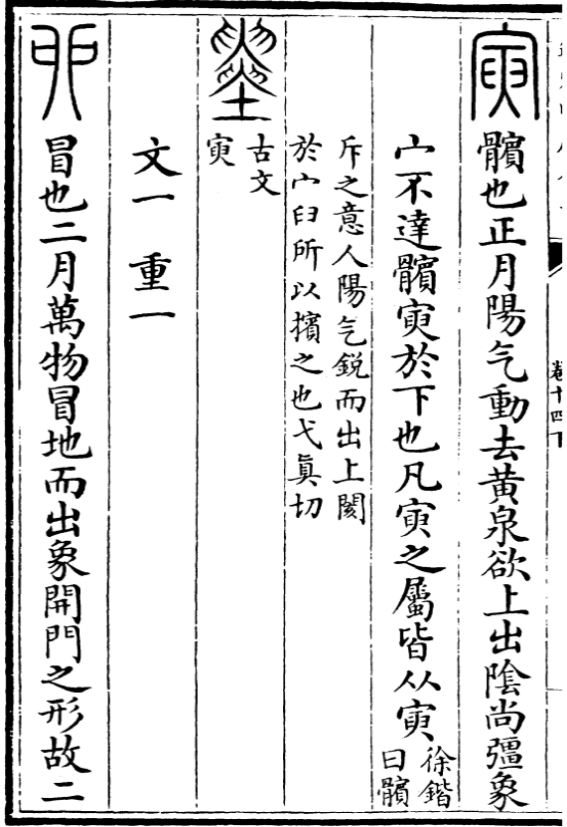 寅 髕也正月陽气動去黃泉欲上出陰尚彊象
宀不達髕寅於下也凡寅之屬皆从寅 徐鍇
曰髕
斥之意人陽气銳而出上閡
於宀臼所以擯之也弋真切
古文
寅
文一 重一
卯 冒也二月萬物冒地而出象開門之形故二
卷十四下